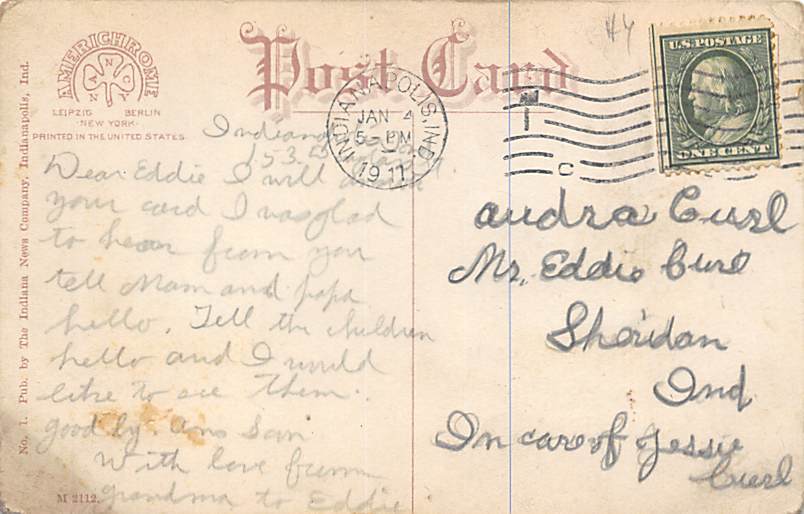 H4
AMERICHROME
A N C N Y
LEIPZIG BERLIN
NEW YORK
PRINTED IN THE UNITED STATES
Post Card
U.S. POSTAGE
ONE CENT
INDIANAPOLIS, IND.
JAN 4
5- PM
1911
C
No. 1. Pub. by The Indiana News Company, Indianapolis, Ind.
153.
Dear Eddie I will
your card I was glad
to hear from you
tell Mom and papa
hello. Tell the children
hello and I would
like to see them.
good by. ans Soon
With love from
grandma to Eddie
M 2112.
audra Curl
Mr. Eddie Curl
Sheridan
Ind
In care of Jessie
Curl